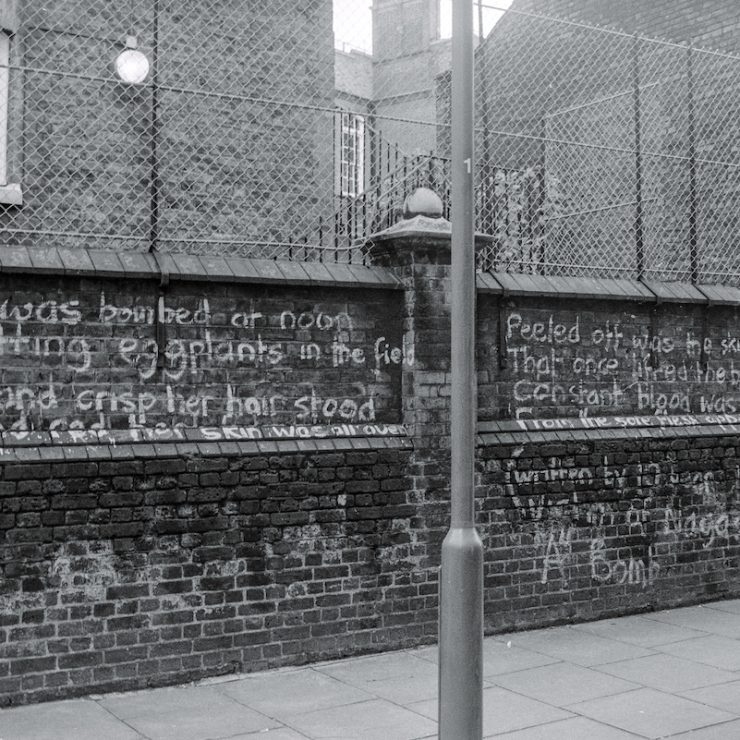 was bombed at noon
tting eggplants in the field
and crisp her hair stood
red, her skin was all over
Peeled off was the ski
That once the b
Constant blood was
From the sore flesh
(written by
victim of Nagas
"A" Bomb
1